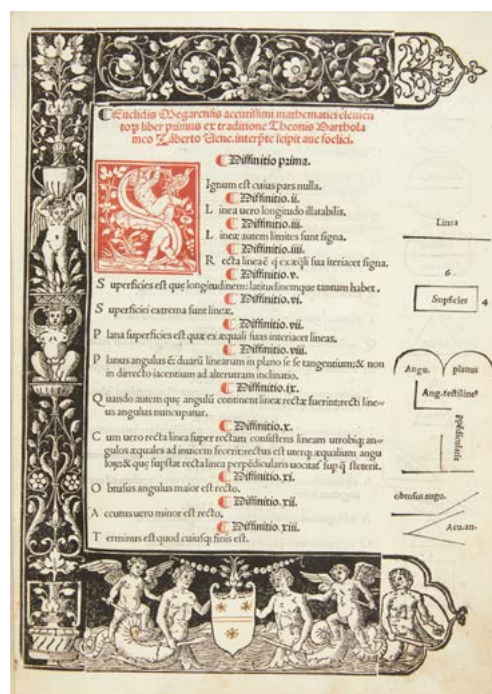 Euclidis Megarensis accutissimi mathematici elemen
torꝝ liber primus ex traditione Theonis Barthola
meo Zãberto Vene. interp̃te ĩcipit aue foelici.
Diffinitio prima.
Signum est cuius pars nulla.
Diffinitio.ii.
Linea uero longitudo illatabilis.
Diffinitio.iii.
Lineæ autem limites sunt signa.
Diffinitio.iiii.
Recta linea ẽ q̃ ex æq̃li sua iteriacet signa.
Diffinitio.v.
Superficies est quę longitudinem: latitudinemque tantum habet.
Diffinitio.vi.
Superficiei extrema sunt lineæ.
Diffinitio.vii.
Plana superficies est quæ ex æquali suas interiacet lineas.
Diffinitio.viii.
Planus angulus ẽ duarũ linearum in plano se se tangentium: & non
in dirrecto iacentium ad alterutram inclinatio.
Diffinitio.ix.
Quando autem quę angulũ continent lineæ rectæ fuerint: recti line-
us angulus nuncupatur.
Diffinitio.x.
Cum uero recta linea super rectam consistens lineam utrobiq; an-
gulos æquales ad inuicem fecerit: rectus est uterq; æqualium angu
loꝝ: & quę supstat recta linea perpẽdicularis uocitat̃ sup q̃ steterit.
Diffinitio.xi.
Obtusus angulus maior est recto.
Diffinitio.xii.
Accutus uero minor est recto.
Diffinitio.xiii.
Terminus est quod cuiusq; finis est.
Linea
6
Supficies 4
Angu. planus
Ang. rectiline9
ppẽdicularis
obtusus angu.
Acu.an-